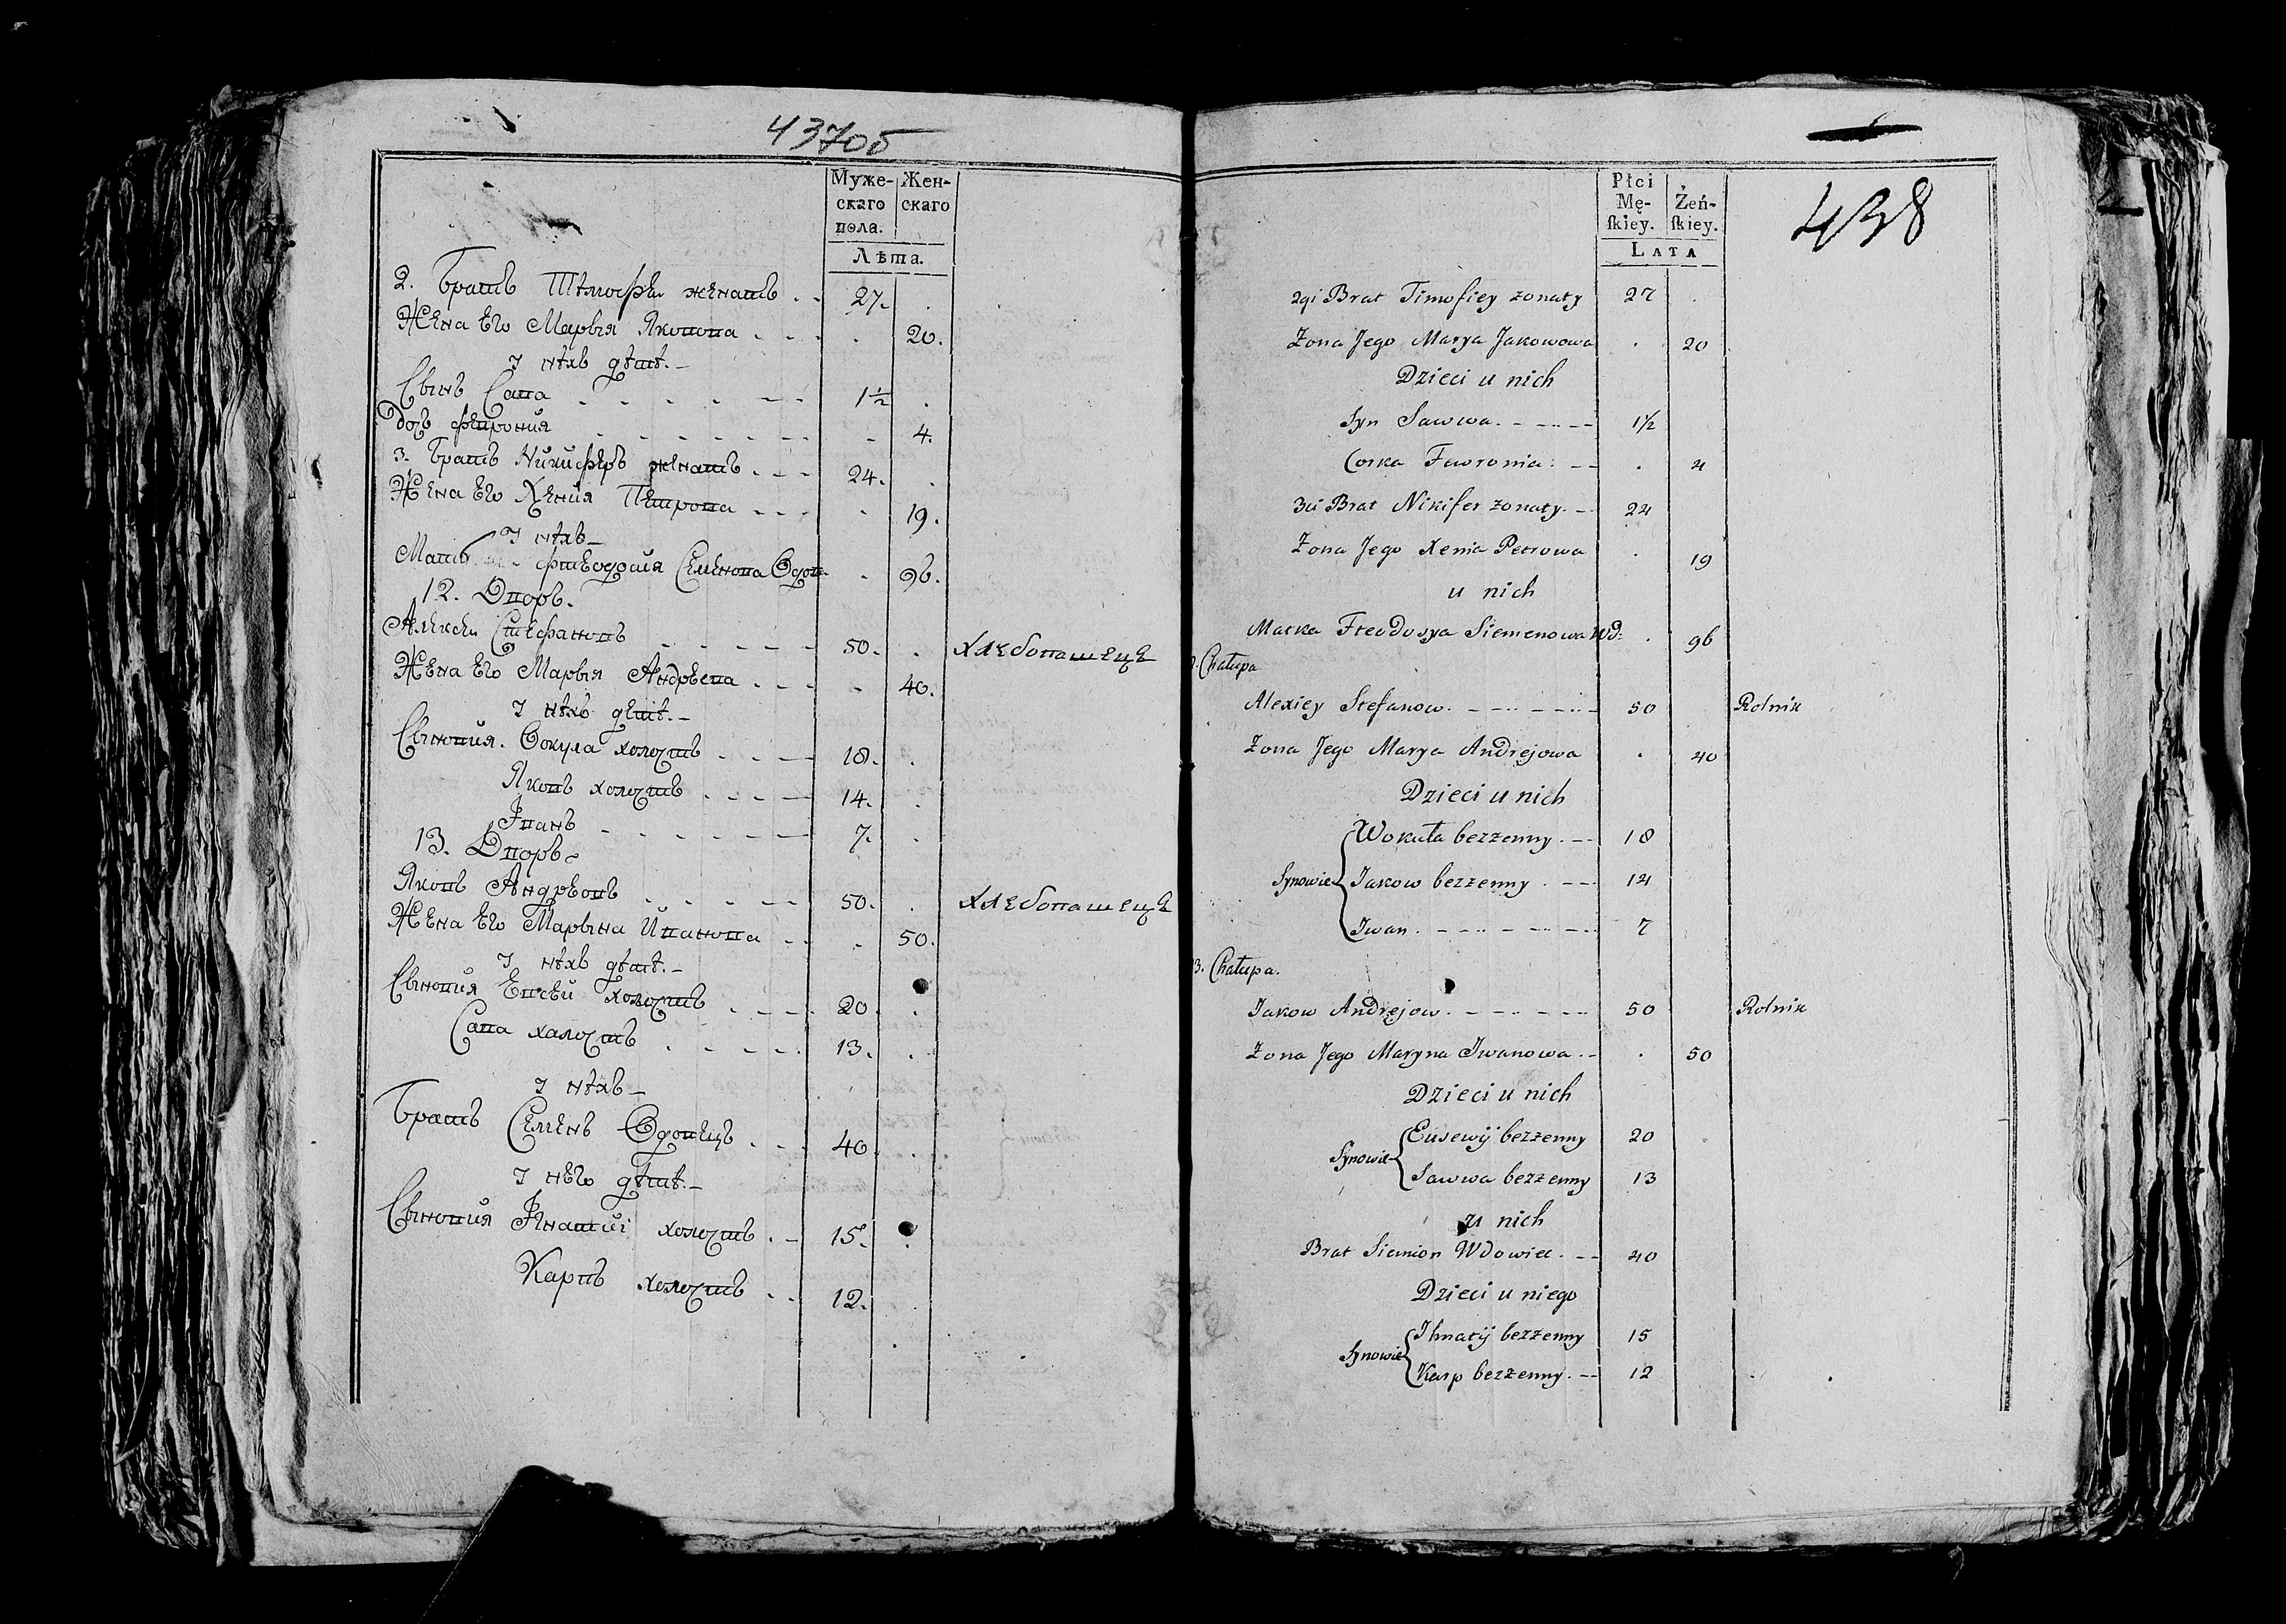 437об
Муже- Жен-
скаго скаго
пола.
Лѣта.
2. Братъ Тѣмофѣи женатъ 27.
Жена Его Марья Якопова 20.
У нѣхъ дѣтѣ.
Сынъ Сава 1½
Доч Феврония 4.
3. Братъ Никиферъ женатъ 24.
Жена Его Хения Петрова 19.
У нѣхъ
Федосия Семенова Вдов. 96.
12. Дворъ.
Алексеи Стефановъ 50. Хлебопашецъ
Жена Его Марья Андреева 40.
У нѣхъ детѣ.
Сыновия. Вокула холостъ 18.
Яковъ холостъ 14.
Іванъ 7.
13. Дворъ
Яковъ Андреовъ 50. Хлебопашецъ
Жена Его Марына Иванова 50.
У нѣхъ дѣтѣ.
Сыновия Евсеи холостъ 20
Сава халостъ 13.
У нѣхъ
Братъ Семенъ Вдовецъ 40
У него дѣтѣ.
Сыновия Ігнатиі холостъ 15.
Карпъ холостъ 12.
438
Płci Żeń-
Mę- skiey.
skiey.
LATA
2gi Brat Timofiey żonaty 27
Żona Jego Marya Jakowowa 20
Dzieci u nich
Syn Sawwa 1½
Corka Fewronia 4
3ci Brat Nikifer żonaty 24
Żona Jego Xenia Petrowa 19
u nich
Matka Fteodosya Siemenowa Wd: 96
Chałupa
Alexiey Stefanow 50 Rolnik
Żona Jego Marya Andrejowa 40
Dzieci u nich
Wokuła bezżenny 18
Synowie Jakow bezżenny 14
Iwan 7
3. Chałupa.
Jakow Andrejow 50 Rolnik
Żona Jego Maryna Iwanowa 50
Dzieci u nich
Eusewij bezżenny 20
Synowie
Sawwa bezżenny 13
u nich
Brat Siemion Wdowiec 40
Dzieci u niego
Ihnatij bezżenny 15
Synowie
Karp bezżenny 12